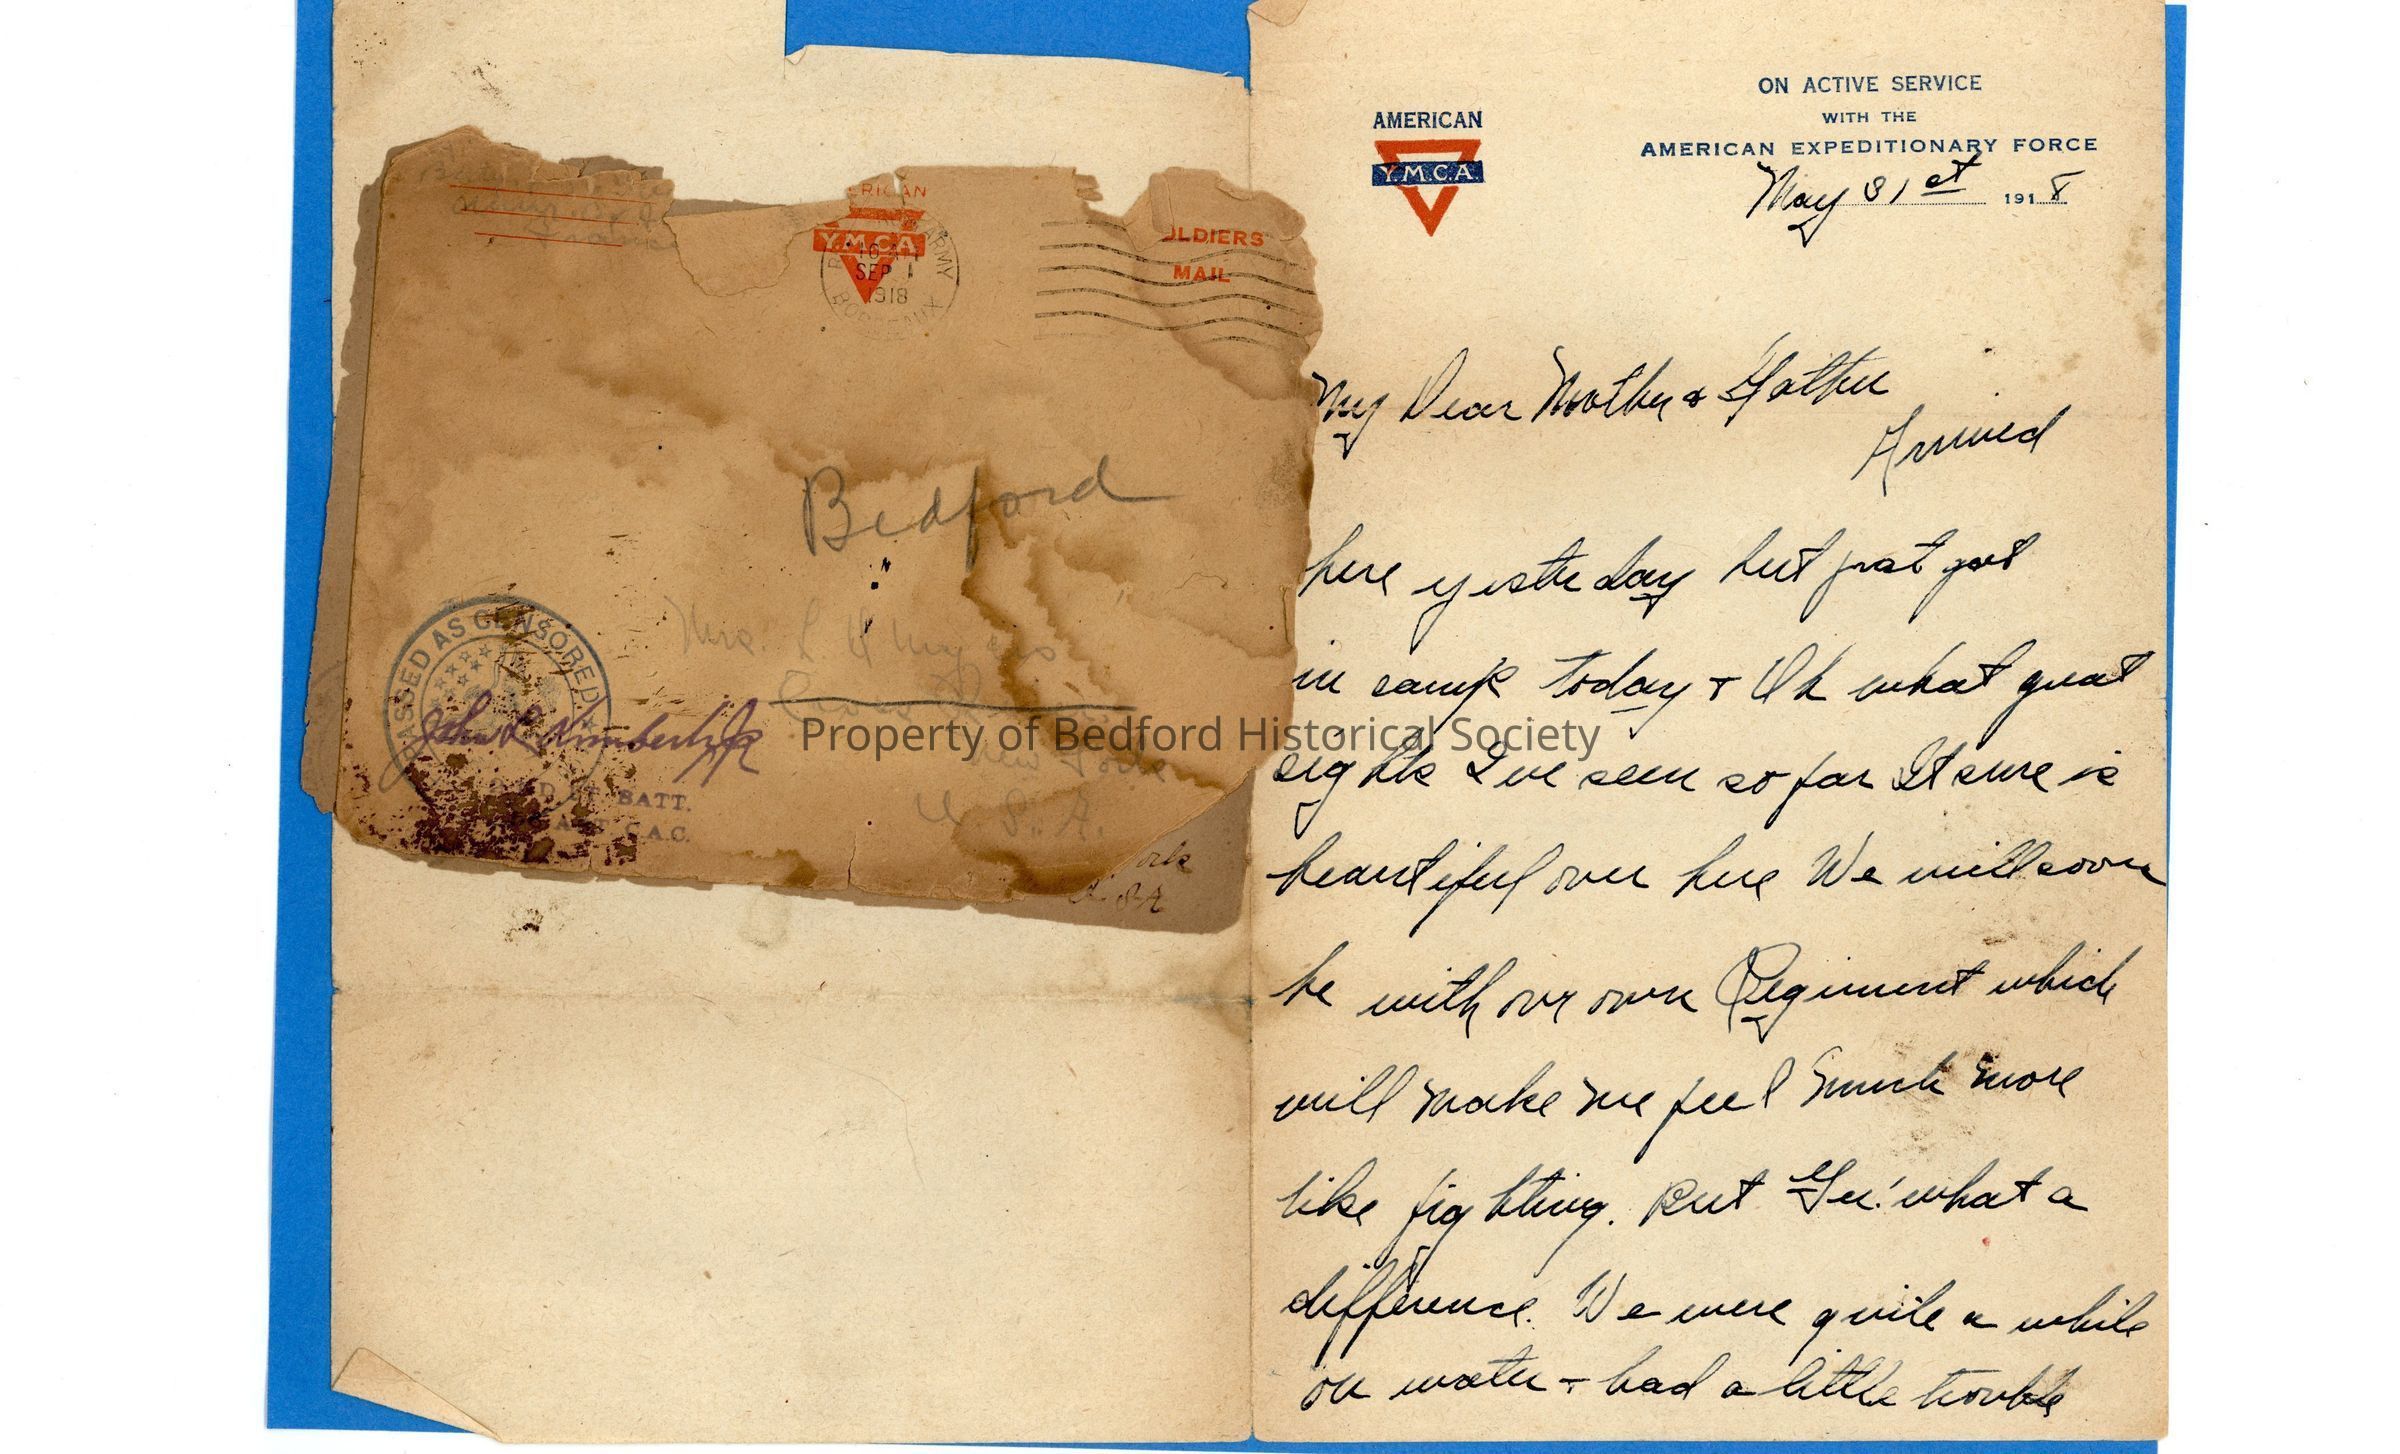 ERICAN
Y.M.C.A.
SEP 1
1918
BORDEAUX
ARMY
OLDIERS
MAIL
Bedford
N
Mrs. L H Myers
New York
U. S. A.
PASSED AS CENSORED
John L Kimberly Jr
BATT.
C.A.C.
ork
U. S. A
Property of Bedford Historical Society
AMERICAN
Y.M.C.A.
ON ACTIVE SERVICE
WITH THE
AMERICAN EXPEDITIONARY FORCE
May 31st 1918
My Dear Mother & Father
Arrived
here yesterday but just got
in camp today + Oh what great
sights I've seen so far It sure is
beautiful over here We will soon
be with our own Regiment which
will make me feel much more
like fighting. But Gee! what a
difference. We were quite a while
on water + had a little trouble